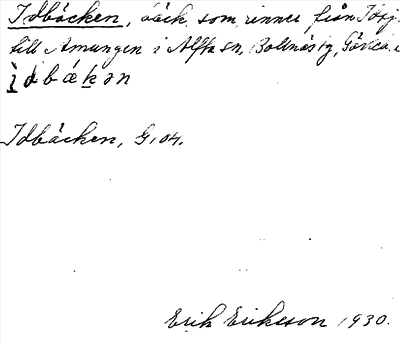 Idbäcken, bäck som rinner från Idsj
till Amungen i Alfta sn, Bollnäs tg, Gävleb. l
ìdbákən
Idbäcken, G.04.
Erik Eriksson 1930.